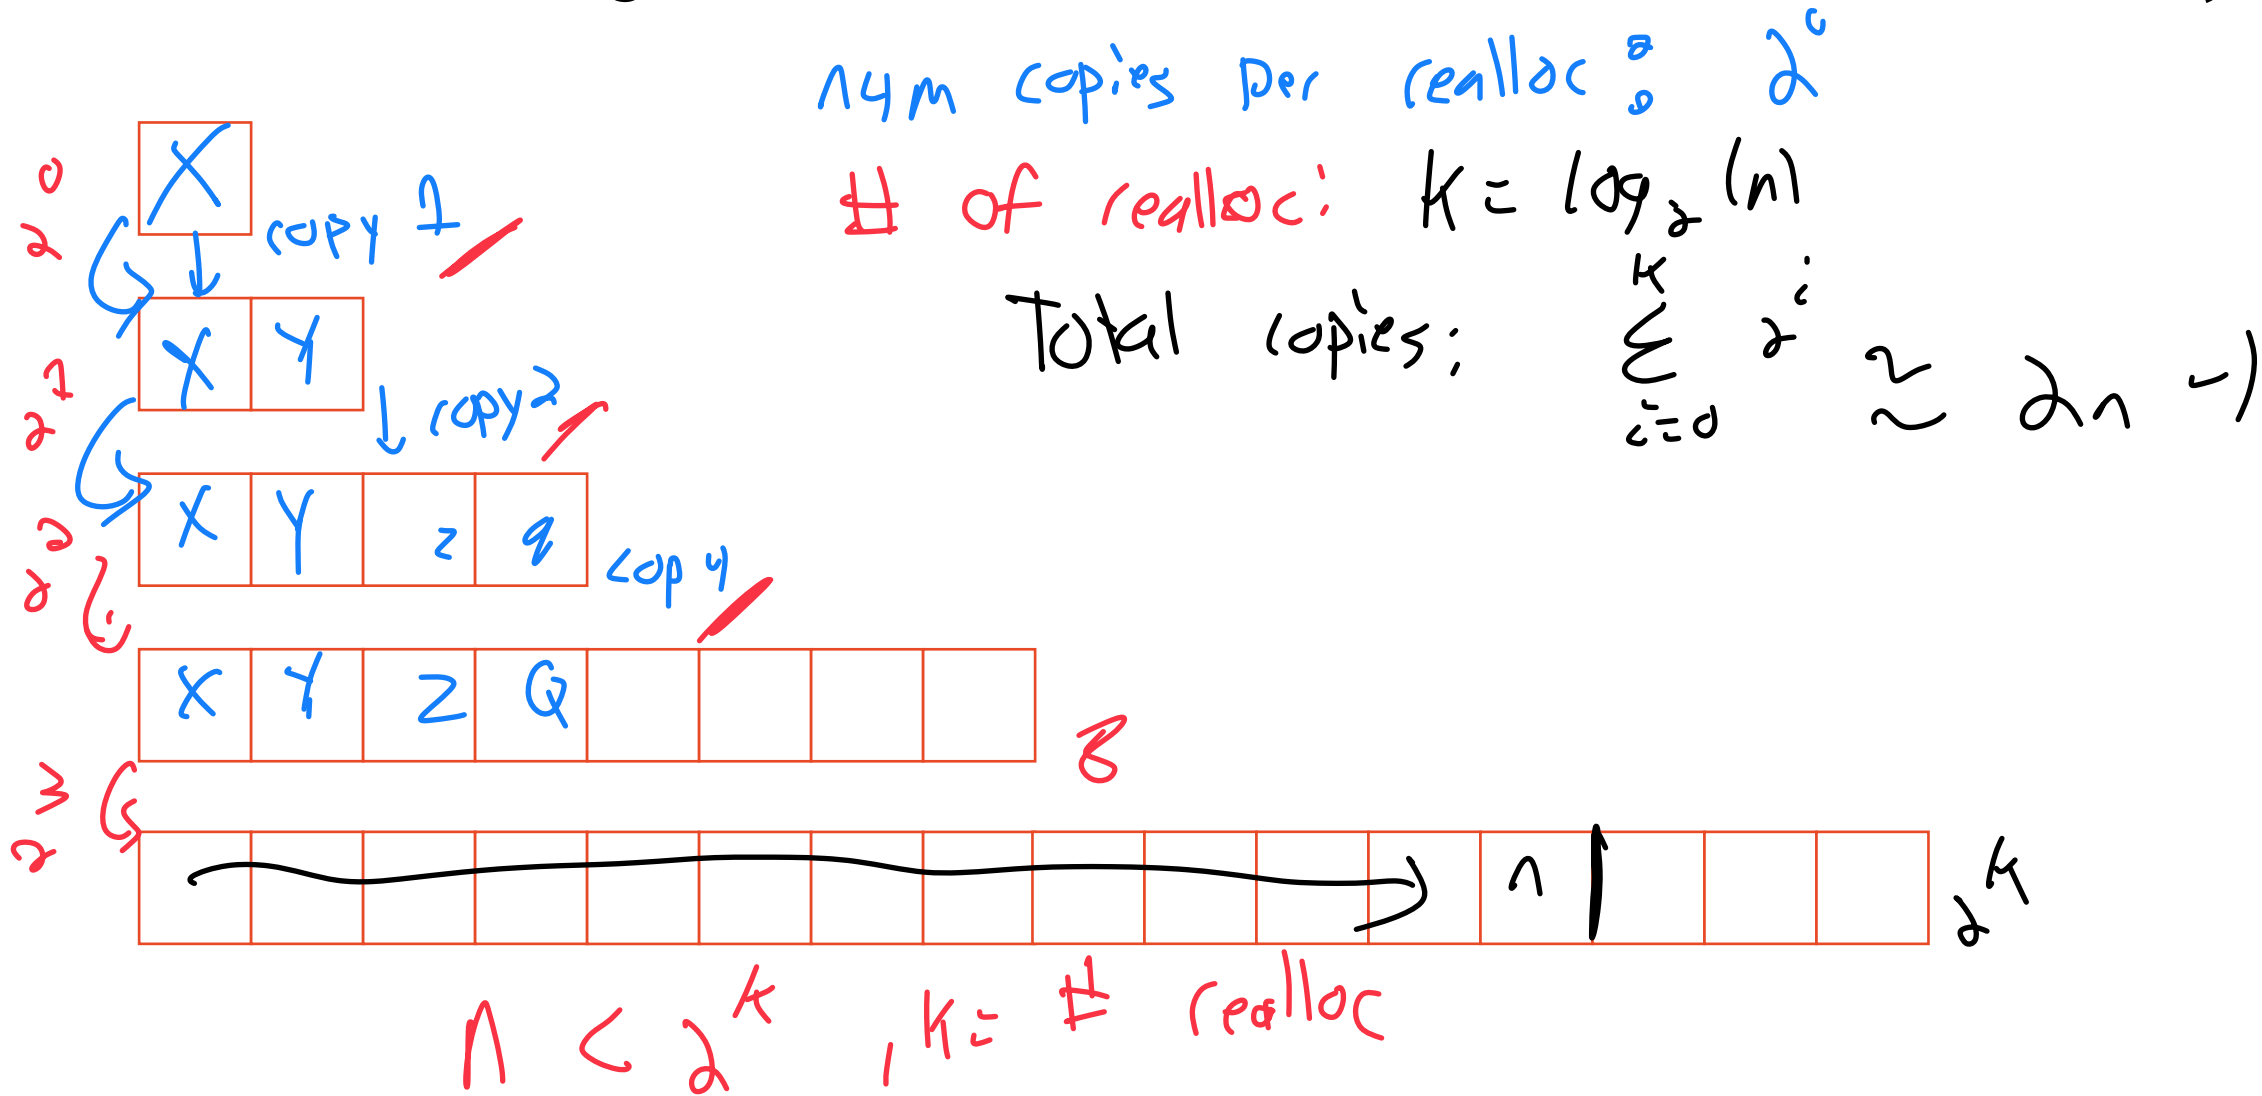 num copies per realloc: 2^0
# of realloc: K = log_2(n)
Total copies: K Σ i=0 2^i ≈ 2n - 1
2^0
X
copy 1
2^1
X Y
copy 2
2^2
X Y z q
copy 4
X Y Z Q
8
2^3
n
2^K
n < 2^K , K = # realloc